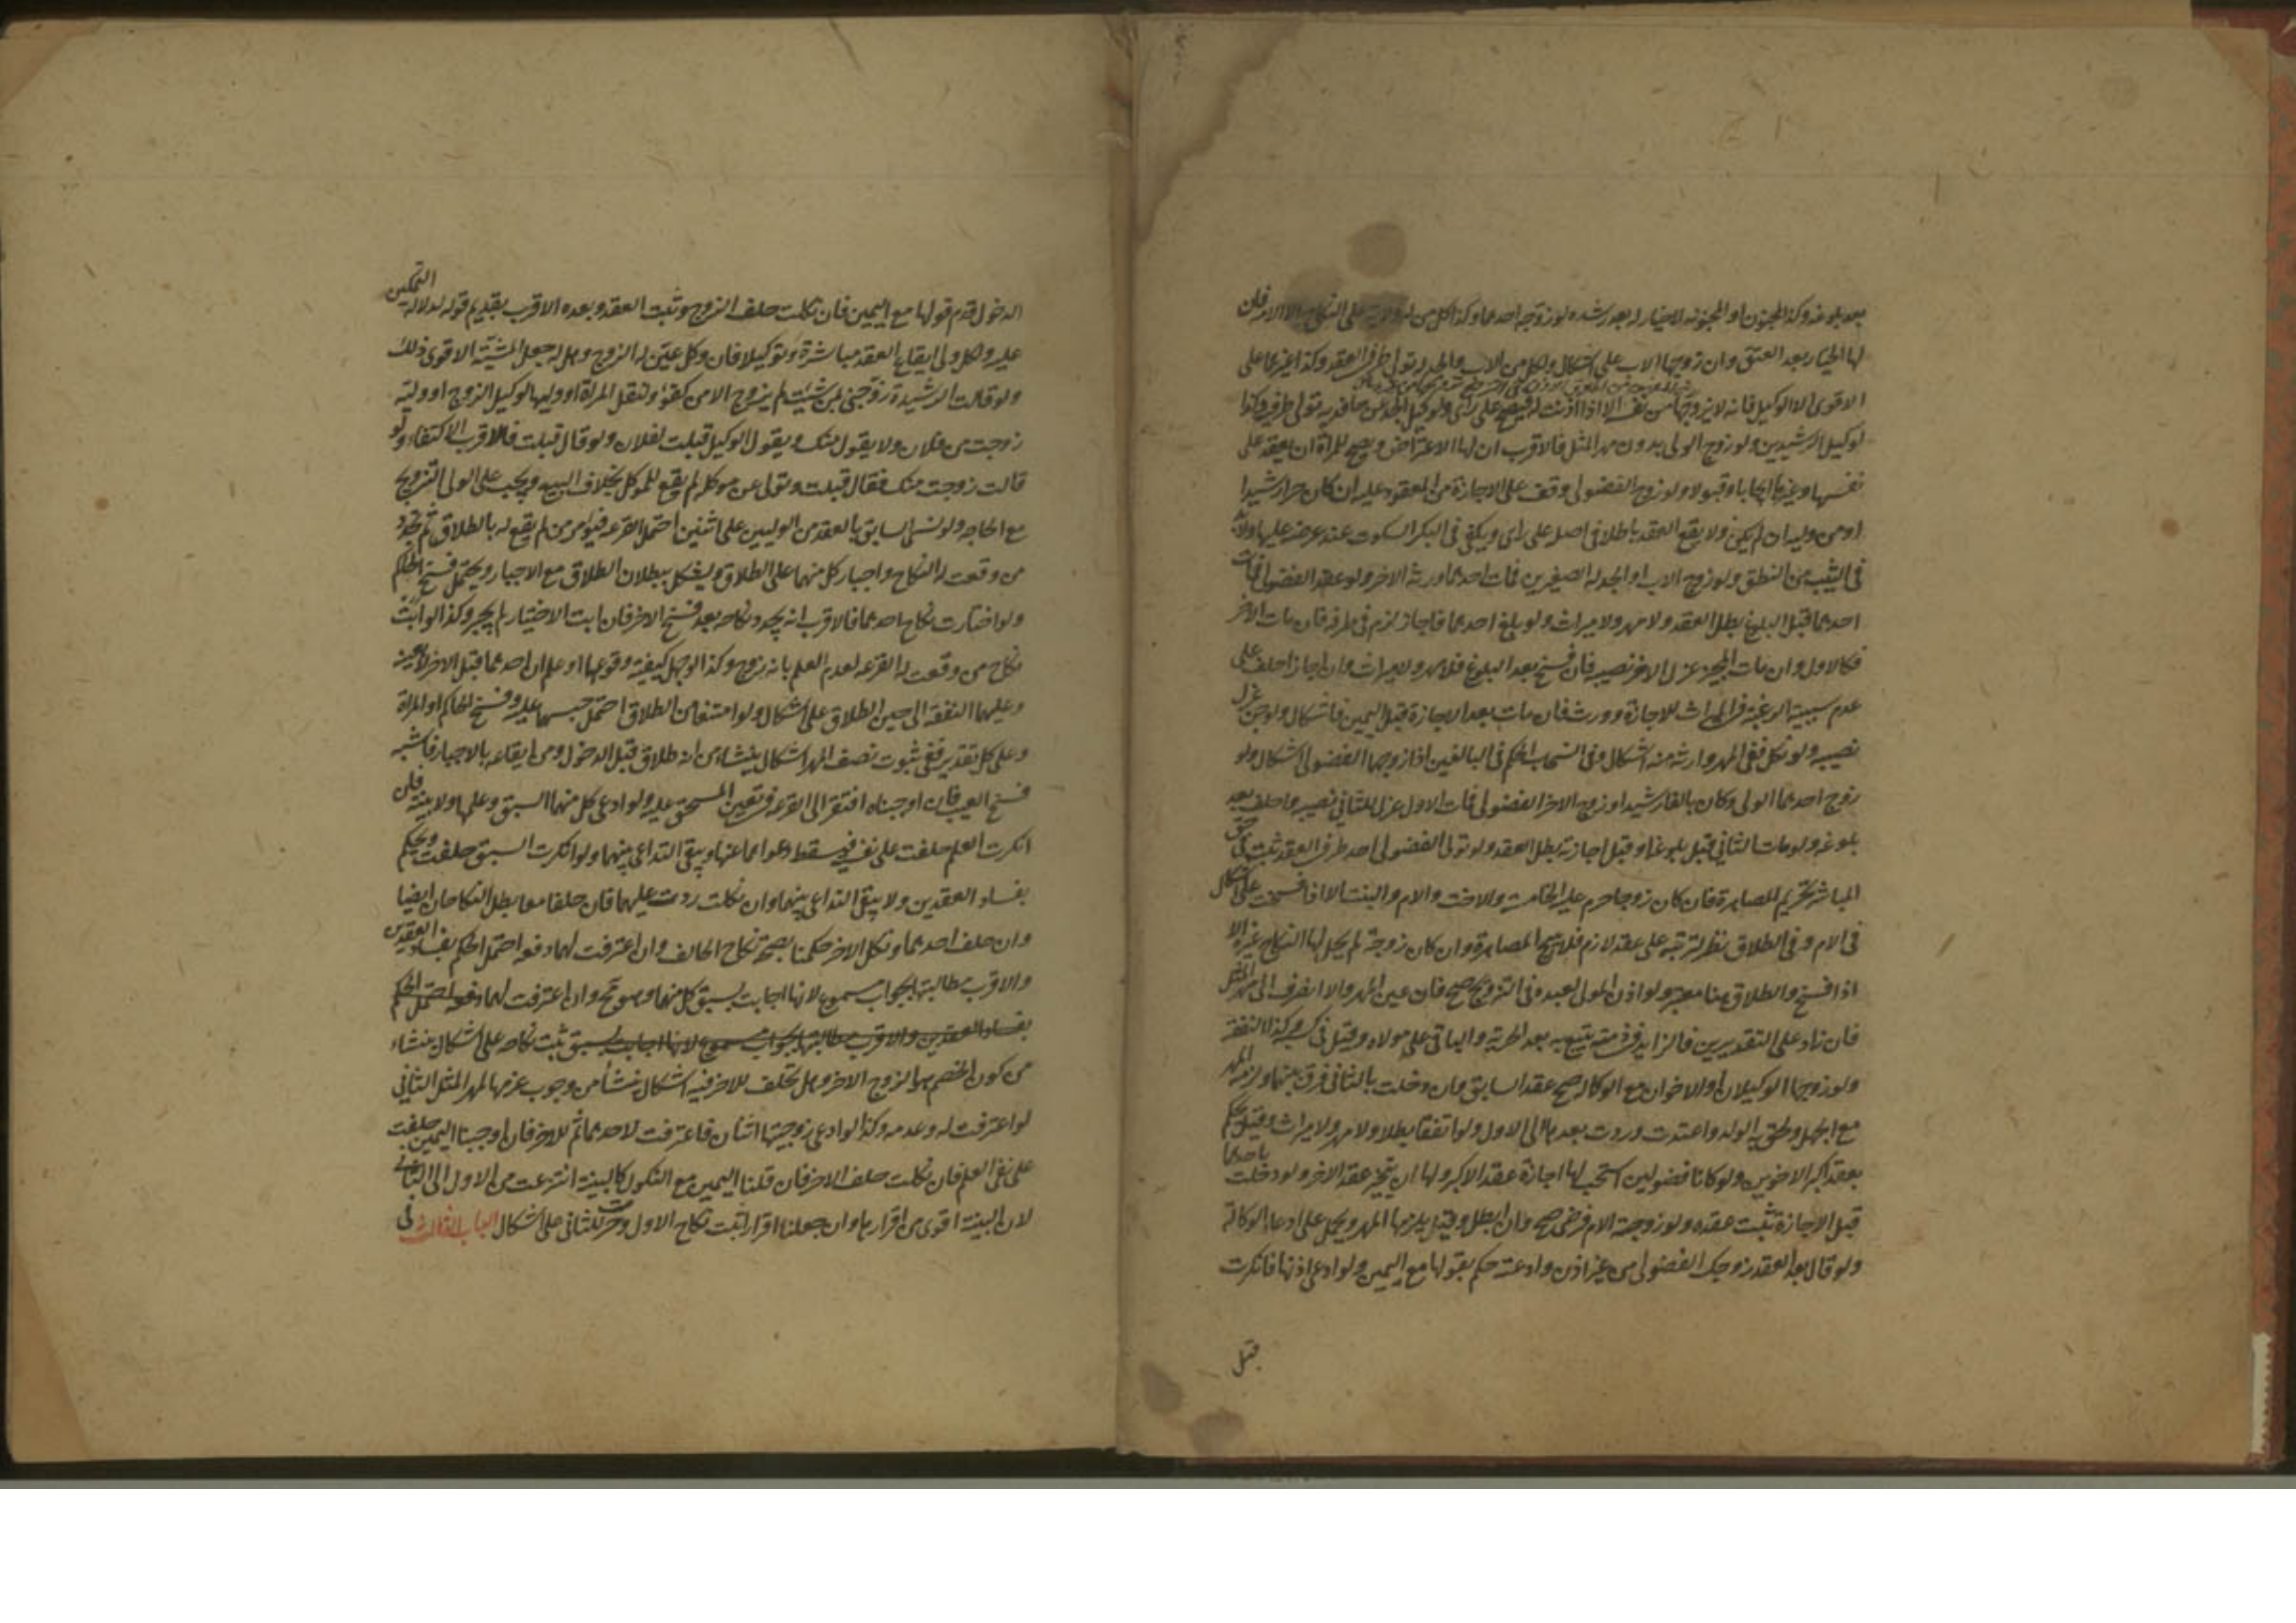 بعد بلوغه وكذا المجنون او المجنونه لاخيار له بعد رشده لو زوجه احدهما وكذا كل من له ولاية على النكاح الا الامة فان
لها الخيار بعد العتق وان زوجها الاب على اشكال ولكل من الاب والجد له تولى طرفى العقد وكذا لغيرهما على
الاقوى الا الوكيل فانه لا يزوجها من نفسه الا اذا اذنت له فيصح على راى ولوكيل الجد عن حافديه تولى طرفيه وكذا
لوكيل الرشيدين ولو زوج الولى بدون مهر المثل فالاقرب ان لها الاعتراض ويصح للمراة ان تعقد على
نفسها وغيرها ايجابا وقبولا ولو زوج الفضولى وقف على الاجازة من المعقود عليه ان كان حرا رشيدا
او من وليه ان لم يكن ولا يقع العقد باطلا فى اصل على راى ويكفى فى البكر السكوت عند عرضه عليها
فى الثيب من النطق ولو زوج الاب او الجد له الصغيرين فمات احدهما ورثه الاخر ولو عقد الفضولى فمات
احدهما قبل البلوغ بطل العقد ولا مهر ولا ميراث ولو بلغ احدهما فاجاز لزم فى طرفه فان مات الاخر
فكالاول وان مات المجيز عزل للاخر نصيبه فان فسخ بعد البلوغ فلا مهر ولا ميراث وان اجاز احلف على
عدم سببية الرغبة فى الميراث للاجازة وورث فان مات بعد الاجازة قبل اليمين فاشكال ولو جن عزل
نصيبه ولو نكل ففى المهر وارثه منه اشكال وفى انسحاب الحكم فى البالغين اذا زوجهما الفضولى اشكال ولو
زوج احدهما الولى وكان بالغا رشيدا وزوج الاخر الفضولى فمات الاول عزل للثانى نصيبه واحلف بعد
بلوغه ولو مات الثانى قبل بلوغه او قبل اجازته بطل العقد ولو تولى الفضولى احد طرفى العقد ثبت فى حق
المباشر تحريم المصاهرة فان كان زوجا حرم عليه الخامسة والاخت والام والبنت الا اذا فسخت على اشكال
فى الام وفى الطلاق نظر لترتبه على عقد لازم فلا يبيح المصاهرة وان كان زوجة لم يحل لها النكاح بغيره الا
اذا فسخ والطلاق هنا معتبر ولو اذن المولى لعبده فى التزويج صح فان عين المهر والا انصرف الى مهر المثل
فان زاد على التقديرين فالزايد فى ذمته يتبع به بعد الحرية والباقى على مولاه وقيل فى كسبه وكذا النفقة
ولو زوجها الوكيلان او الاخوان مع الوكالة صح عقد السابق فان دخلت بالثانى فرق بينهما ولزمه المهر
مع الجهل ولحق به الولد واعتدت وردت بعدها الى الاول ولو اتفقا بطلا ولا مهر ولا ميراث وقيل يحكم
بعقد اكبر الاخوين ولو كانا فضوليين استحب لها اجازة عقد الاكبر ولها ان تجيز عقد الاخر ولو دخلت باحدهما
قبل الاجازة ثبت عقده ولو زوجته الام فرضى صح وان ابطل وقيل يلزمها المهر ويحمل على ادعاء الوكالة
ولو قال بعد العقد زوجك الفضولى من غير اذن وادعته حكم بقولها مع اليمين ولو ادعى اذنها فانكرت
قبل
الدخول قدم قولها مع اليمين فان نكلت حلف الزوج وثبت العقد وبعده الاقرب تقديم قوله لدلالة التمكين
عليه ولكل ولى ايقاع العقد مباشرة وتوكيلا فان وكل عين له الزوج وهل له جعل المشيئة الاقوى ذلك
ولو قالت الرشيدة زوجنى ممن شئت لم يزوج الا من كفؤ ولتقل المراة او وليها لوكيل الزوج او وليه
زوجت من فلان ولا يقول منك ويقول الوكيل قبلت لفلان ولو قال قبلت فالاقرب الاكتفاء ولو
قالت زوجت منك فقال قبلت ونوى عن موكله لم يقع للموكل بخلاف البيع ويجب على الولى التزويج
مع الحاجه ولو نسى السابق بالعقد من الوليين على اثنين احتمل القرعه فيؤمر من لم يقع له بالطلاق ثم تجدد
من وقعت له النكاح واجبار كل منهما على الطلاق ويشكل ببطلان الطلاق مع الاجبار ويحتمل فسخ الحاكم
ولو اختارت نكاح احدهما فالاقرب انه يجدد نكاحه بعد فسخ الاخر فان ابت الاختيار لم تجبر وكذا لو ابت
نكاح من وقعت له القرعه لعدم العلم بانه زوج وكذا لو جهل كيفية وقوعهما او علم ان احدهما قبل الاخر لا بعينه
وعليهما النفقة الى حين الطلاق على اشكال ولو امتنعا من الطلاق احتمل حبسهما عليه وفسخ الحاكم او المراة
وعلى كل تقدير ففى ثبوت نصف المهر اشكال ينشاء من انه طلاق قبل الدخول ومن ايقاعه بالاجبار فاشبه
فسخ العيب فان اوجبناه افتقر الى القرعه فى تعيين المستحق عليه ولو ادعى كل منهما السبق وعلمها ولا بينة فان
انكرت العلم حلفت على نفيه فيسقط دعواهما عنها ويبقى التداعى بينهما ولو انكرت السبق حلفت ويحكم
بفساد العقدين ولا يبقى التداعى بينهما وان نكلت ردت عليهما فان حلفا معا بطل النكاحان ايضا
وان حلف احدهما ونكل الاخر حكمنا بصحة نكاح الحالف وان اعترفت لهما دفعه احتمل الحكم بفساد العقدين
والاقرب مطالبتها بجواب مسموع لانها اجابت بسبق كل منهما وهو مح وان اعترفت لهما دفعه احتمل الحكم
بفساد العقدين والاقرب مطالبتها بجواب مسموع لانها اجابت بسبق ثبت نكاحه على اشكال ينشاء
من كون الخصم هو الزوج الاخر وهل تحلف للاخر فيه اشكال ينشأ من وجوب غرمها لمهر المثل للثانى
لو اعترفت له وعدمه وكذا لو ادعى زوجيتها اثنان فاعترفت لاحدهما ثم للاخر فان اوجبنا اليمين حلفت
على نفى العلم فان نكلت حلف الاخر فان قلنا اليمين مع النكول كالبينة انتزعت من الاول الى الثانى
لان البينة اقوى من اقرارها وان جعلنا اقرارا ثبت نكاح الاول وغرمت للثانى على اشكال الباب الثالث فى